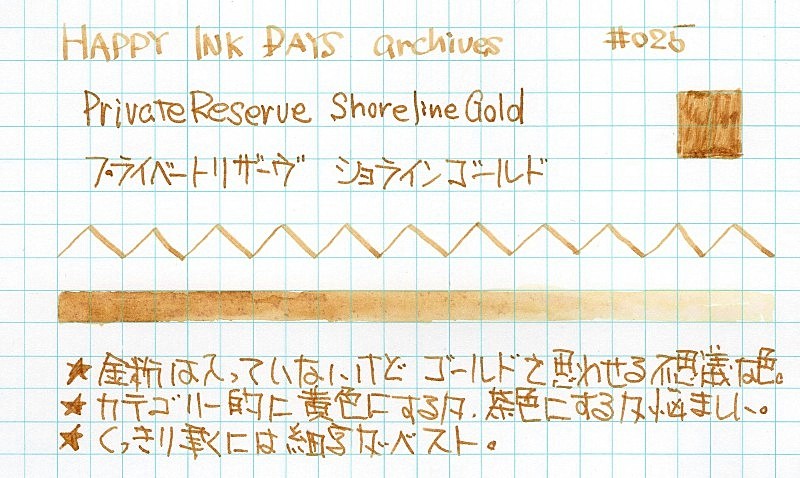 HAPPY INK DAYS archives #026
PrivateReserve ShorelineGold
プライベートリザーヴ ショラインゴールド
★金粉は入っていないけど ゴールドを思わせる不思議な色。
★カテゴリー的に黄色にするか、茶色にするか悩ましい。
★くっきり書くには細字がベスト。